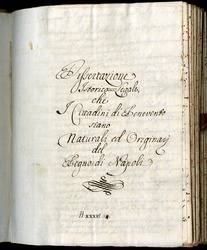 Dissertazione
Istorico-Legale,
che
I Cittadini di Benevento
siano
Naturali ed Originarj
del
Regno di Napoli